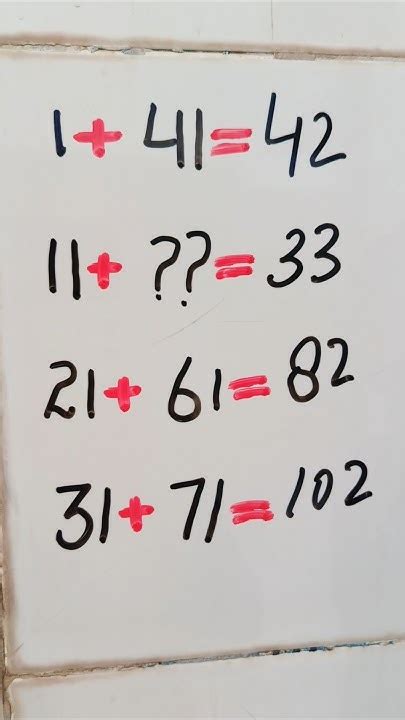 1 + 41 = 42
11 + ?? = 33
21 + 61 = 82
31 + 71 = 102